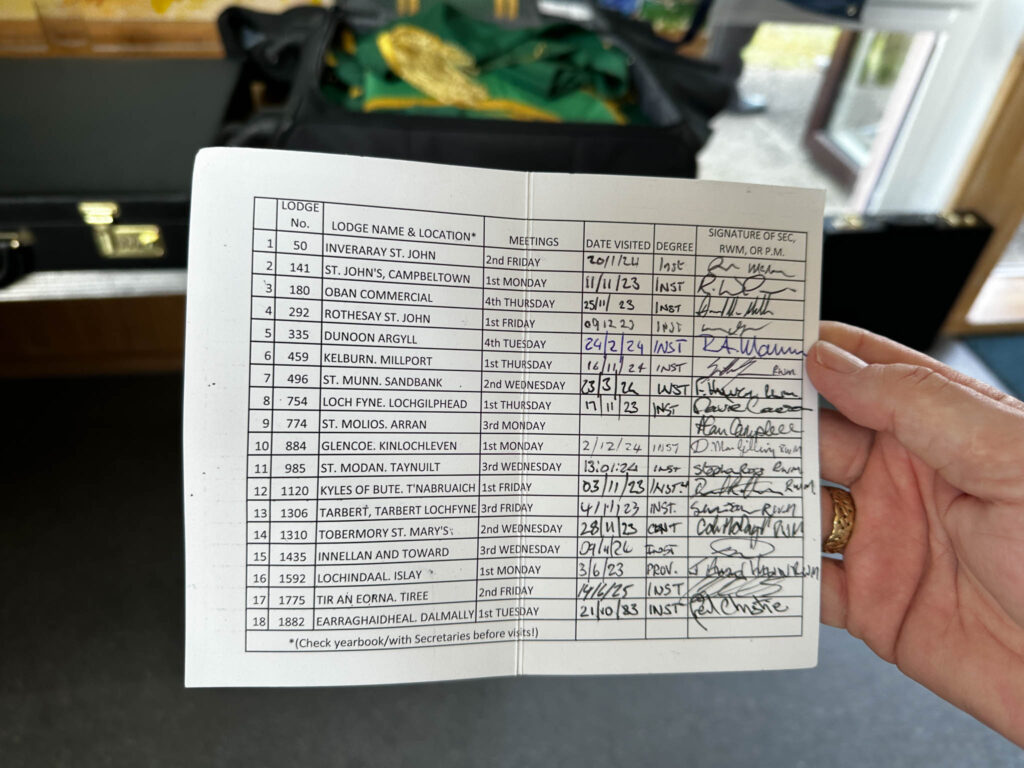 LODGE No. LODGE NAME & LOCATION* MEETINGS DATE VISITED DEGREE SIGNATURE OF SEC, RWM, OR P.M.
1 50 INVERARAY ST. JOHN 2nd FRIDAY 20/1/24 Inst
2 141 ST. JOHN'S, CAMPBELTOWN 1st MONDAY 11/11/23 INST
3 180 OBAN COMMERCIAL 4th THURSDAY 25/11/23 INST
4 292 ROTHESAY ST. JOHN 1st FRIDAY 09 12 23 INST
5 335 DUNOON ARGYLL 4th TUESDAY 24/2/24 INST R.A.
6 459 KELBURN. MILLPORT 1st THURSDAY 16/11/24 INST RWM
7 496 ST. MUNN. SANDBANK 2nd WEDNESDAY 23/3/24 INST
8 754 LOCH FYNE. LOCHGILPHEAD 1st THURSDAY 17/11/23 INST
9 774 ST. MOLIOS. ARRAN 3rd MONDAY Alan Campbell
10 884 GLENCOE. KINLOCHLEVEN 1st MONDAY 2/12/24 INST RWM
11 985 ST. MODAN. TAYNUILT 3rd WEDNESDAY 13.01.24 INST RWM
12 1120 KYLES OF BUTE. T'NABRUAICH 1st FRIDAY 03/11/23 RWM
13 1306 TARBERT, TARBERT LOCHFYNE 3rd FRIDAY INST. RWM
14 1310 TOBERMORY ST. MARY'S 2nd WEDNESDAY 28/11/23 CENT RWM
15 1435 INNELLAN AND TOWARD 3rd WEDNESDAY 09/4/24 INST
16 1592 LOCHINDAAL. ISLAY 1st MONDAY 3/6/23 PROV. RWM
17 1775 TIR AN EORNA. TIREE 2nd FRIDAY 14/6/25 INST
18 1882 EARRAGHAIDHEAL. DALMALLY 1st TUESDAY 21/10/83 INST Christie
*(Check yearbook/with Secretaries before visits!)